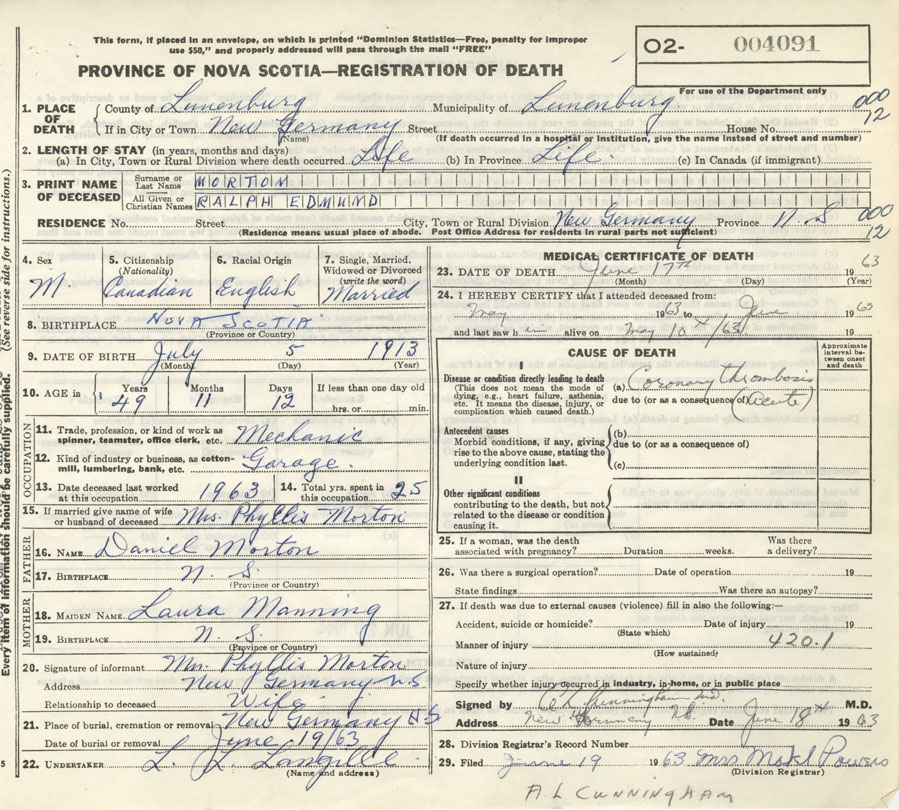 This form, if placed in an envelope, on which is printed "Dominion Statistics—Free, penalty for improper
use $50," and properly addressed will pass through the mail "FREE"
PROVINCE OF NOVA SCOTIA—REGISTRATION OF DEATH
O2- 004091
For use of the Department only
000
12
1. PLACE OF DEATH
County of Lunenburg Municipality of Lunenburg
If in City or Town New Germany Street House No.
(Name) (If death occurred in a hospital or institution, give the name instead of street and number)
2. LENGTH OF STAY (in years, months and days)
(a) In City, Town or Rural Division where death occurred Life (b) In Province Life. (c) In Canada (if immigrant)
3. PRINT NAME OF DECEASED
Surname or Last Name MORTON
All Given or Christian Names RALPH EDMUND
RESIDENCE No. Street City, Town or Rural Division New Germany Province N. S
(Residence means usual place of abode. Post Office Address for residents in rural parts not sufficient)
000
12
4. Sex M.
5. Citizenship (Nationality) Canadian
6. Racial Origin English
7. Single, Married, Widowed or Divorced (write the word) Married
8. BIRTHPLACE NOVA SCOTIA
(Province or Country)
9. DATE OF BIRTH July 5 1913
(Month) (Day) (Year)
10. AGE in Years 49 Months 11 Days 12 If less than one day old hrs. or min.
OCCUPATION
11. Trade, profession, or kind of work as spinner, teamster, office clerk, etc. Mechanic
12. Kind of industry or business, as cotton-mill, lumbering, bank, etc. Garage.
13. Date deceased last worked at this occupation 1963
14. Total yrs. spent in this occupation 25
15. If married give name of wife or husband of deceased Mrs. Phyllis Morton
FATHER
16. NAME Daniel Morton
17. BIRTHPLACE N. S.
(Province or Country)
MOTHER
18. MAIDEN NAME Laura Manning
19. BIRTHPLACE N. S.
(Province or Country)
20. Signature of informant Mrs. Phyllis Morton
Address New Germany N.S
Relationship to deceased Wife
21. Place of burial, cremation or removal New Germany N S
Date of burial or removal June 19/63
22. UNDERTAKER L. L. Langille
(Name and address)
MEDICAL CERTIFICATE OF DEATH
23. DATE OF DEATH June 17th 1963
(Month) (Day) (Year)
24. I HEREBY CERTIFY that I attended deceased from:
May 1963 to June 1963
and last saw him alive on May 10th/63 19
CAUSE OF DEATH
Approximate interval between onset and death
I
Disease or condition directly leading to death
(This does not mean the mode of dying, e.g., heart failure, asthenia, etc. It means the disease, injury, or complication which caused death.)
(a) Coronary thrombosis
due to (or as a consequence of) (acute)
Antecedent causes
Morbid conditions, if any, giving rise to the above cause, stating the underlying condition last.
(b)
due to (or as a consequence of)
(c)
II
Other significant conditions
contributing to the death, but not related to the disease or condition causing it.
25. If a woman, was the death associated with pregnancy? Duration weeks. Was there a delivery?
26. Was there a surgical operation? Date of operation 19
State findings Was there an autopsy?
27. If death was due to external causes (violence) fill in also the following:—
Accident, suicide or homicide? Date of injury 19
(State which)
Manner of injury 420.1
(How sustained)
Nature of injury
Specify whether injury occurred in industry, in home, or in public place
Signed by A L Cunningham M.D. M.D.
Address New Germany N.S. Date June 18th 1963
28. Division Registrar's Record Number
29. Filed June 19 1963 Mrs Powers
(Division Registrar)
A L CUNNINGHAM
Every item of information should be carefully supplied. (See reverse side for instructions.)
5